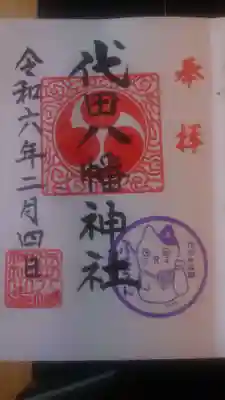 奉拝
代田八幡神社
令和六年二月四日